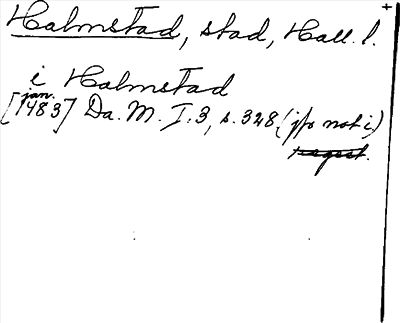 Halmstad, stad, Hall. l.
i Halmstad
jan.
[1483] Da. M. I:3, s. 328 (jfr not i)
regest.